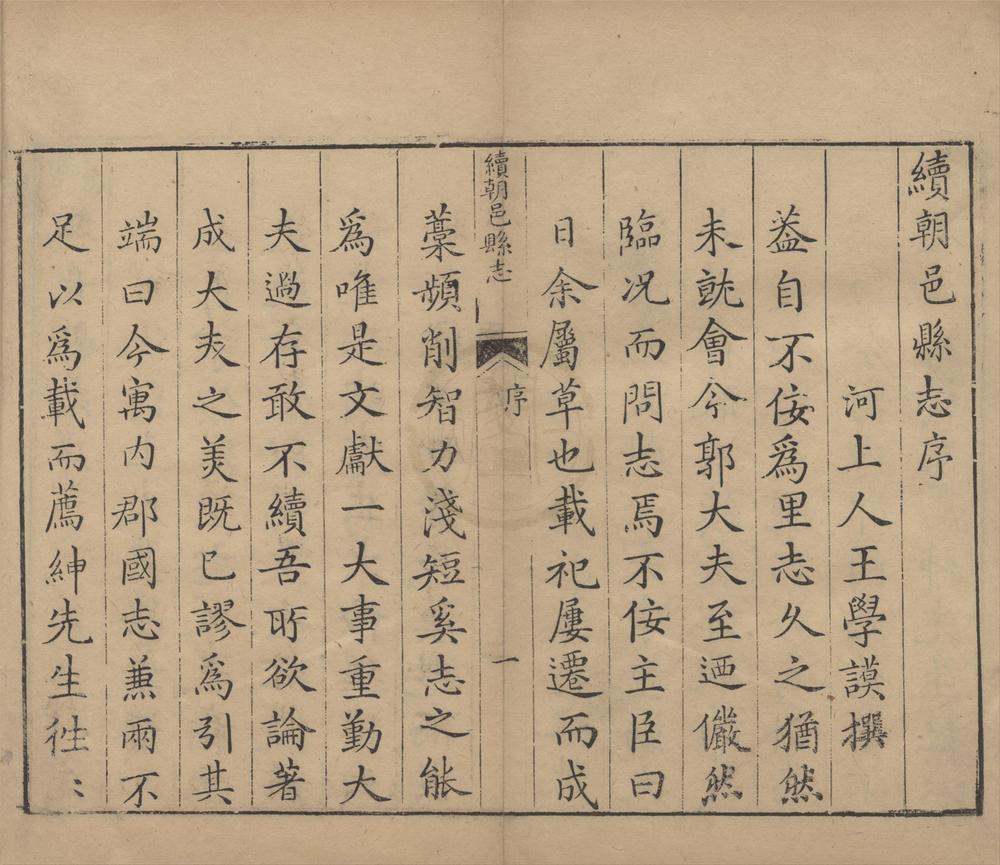 續朝邑縣志序
河上人王學謨撰
葢自不佞爲里志久之猶然
未就會今郭大夫至迺儼然
臨况而問志焉不佞主臣曰
日余屬草也載祀屢遷而成
續朝邑縣志
序
一
藁頻削智力淺短奚志之能
爲唯是文獻一大事重勤大
夫過存敢不續吾所欲論著
成大夫之美既已謬爲引其
端曰今寓内郡國志兼兩不
足以爲載而薦紳先生徃〻